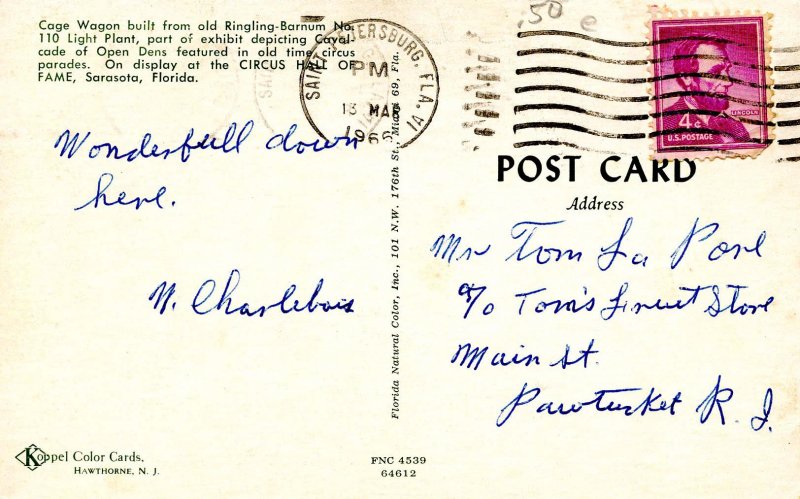 Cage Wagon built from old Ringling-Barnum No.
110 Light Plant, part of exhibit depicting Caval-
cade of Open Dens featured in old time circus
parades. On display at the CIRCUS HALL OF
FAME, Sarasota, Florida.
SAINT PETERSBURG, FLA. VI
PM
13 MAR
1966
.50 e
4¢
LINCOLN
U.S. POSTAGE
Wonderfull down
here.
N. Charlebois
Florida Natural Color, Inc., 101 N.W. 176th St., Miami 69, Fla.
POST CARD
Address
Mr Tom La Pore
c/o Tom's Store
Main St.
Pawtucket R.I.
Koppel Color Cards,
HAWTHORNE, N. J.
FNC 4539
64612